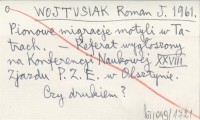 WOJTUSIAK Roman J. 1961.
Pionowe migracje motyli w Ta-
trach. — Referat wygłoszony
na Konferencji Naukowej XXVIII
Zjazdu P.Z.E. w Olsztynie.
Czy drukiem?